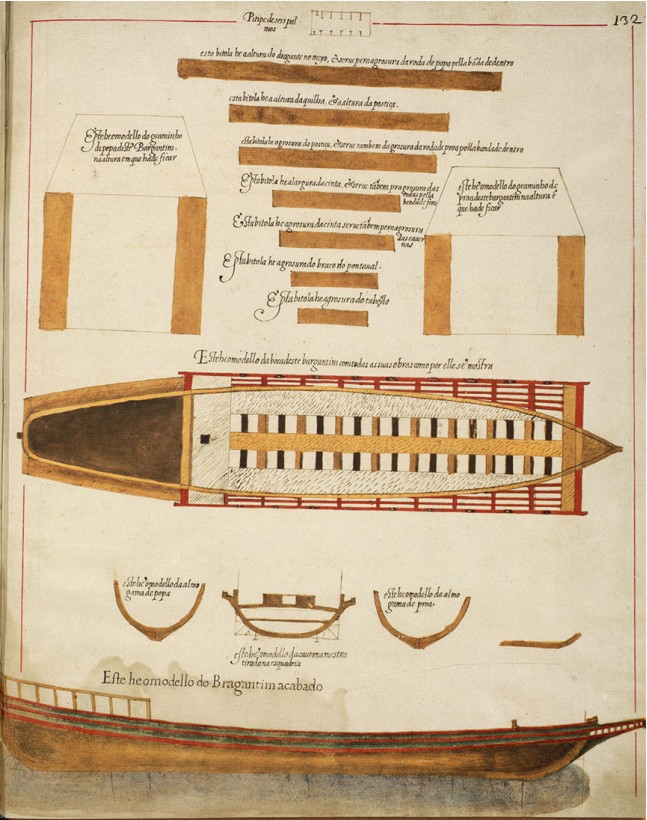 132
Pitipe de seis pal
mos
esta bitola he a altura do dragante no meyo, & serue per a grosura da roda de popa pella bãda de dentro
esta bitola he a altura da quilha, & a altura da postiça.
esta bitola he a grosura da postiça, & serue tambem da grosura da roda de proa polla banda de dentro
Este he o modello do graminho
de popa deste Bargantim.
na altura em que ha de ficar
Esta bitola he a largura da cinta, & serue tãbem pra grosura das
rodas pella
banda de fora
este he o modello do graminho de
proa deste bargantim na altura ẽ
que ha de ficar
Esta bitola he a grosura da cinta serue tãbem per a grosura
das cauer
nas
Esta bitola he a grosura do braço do pontaual.
Esta bitola he a grosura do taboão
Este he o modello da boca deste bargantim com todas as suas obras como por elle se mostra
este he o modello da almo
gama de popa
este he o modello da almo
gama de proa.
este he o modello da cauerna mestra
tirada na esquadria
Este he o modello do Bragantim acabado